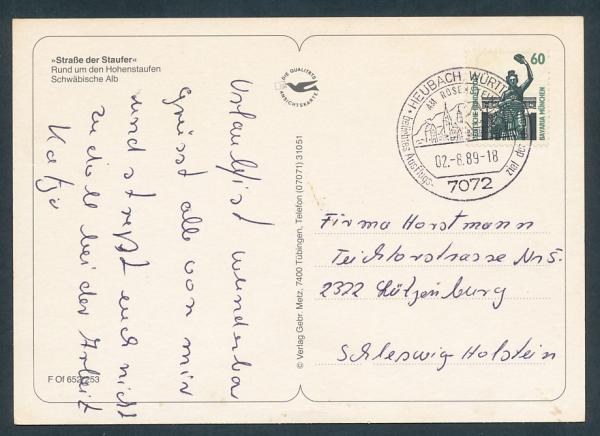 »Straße der Staufer«
Rund um den Hohenstaufen
Schwäbische Alb
DIE QUALITÄTS
ANSICHTSKARTE
Urlaub ist wunderba
grüsst alle von mir
und stresst euch nicht
zu doll bei der Arbeit
Katja
F Of 652 253
© Verlag Gebr. Metz, 7400 Tübingen, Telefon (07071) 31051
HEUBACH, WÜRTT
AM ROSENSTEIN
beliebtes Ausflugs-
ziel der
02.-8.89-18
7072
60
DEUTSCHE BUNDESPOST
BAVARIA MÜNCHEN
Firma Horstmann
Teichtorstrasse Nr 5.
2322 Lütjenburg
Schleswig Holstein